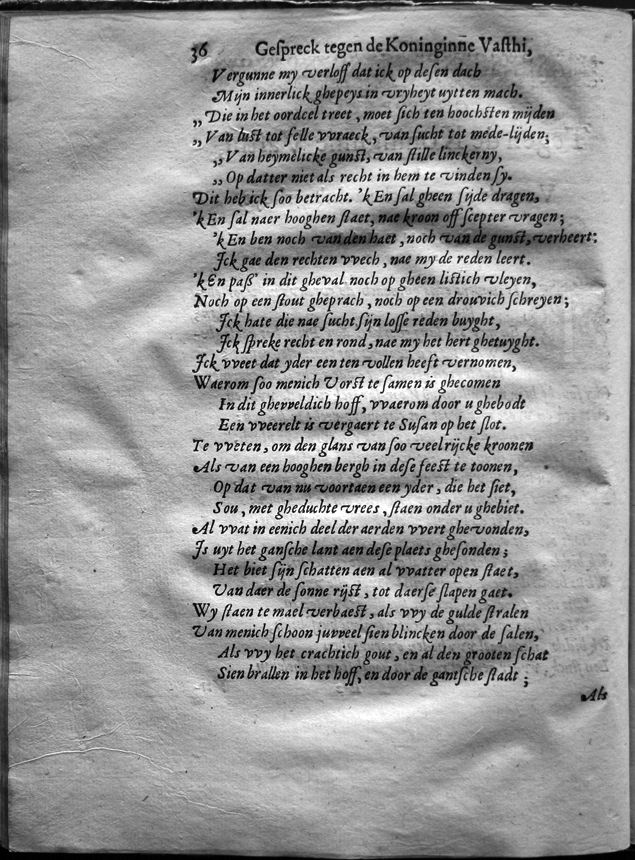 36 Gespreck tegen de Koninginne Vasthi,
Vergunne my verloff dat ick op desen dach
Mijn innerlick ghepeys in vryheyt uytten mach.
„Die in het oordeel treet, moet sich ten hoochsten mijden
„Van lust tot felle vvraeck, van sucht tot mede-lijden;
„Van heymelicke gunst, van stille linckerny,
„Op datter niet als recht in hem te vinden sy.
Dit heb ick soo betracht. 'k En sal gheen sijde dragen,
'k En sal naer hooghen staet, nae kroon off scepter vragen;
'k En ben noch van den haet, noch van de gunst, verheert:
Ick gae den rechten vvech, nae my de reden leert.
'k En paß' in dit gheval noch op gheen listich vleyen,
Noch op een stout gheprach, noch op een drouvich schreyen;
Ick hate die nae sucht sijn losse reden buyght,
Ick spreke recht en rond, nae my het hert ghetuyght.
Ick vveet dat yder een ten vollen heeft vernomen,
Waerom soo menich Vorst te samen is ghecomen
In dit ghevveldich hoff, vvaerom door u ghebodt
Een vveerelt is vergaert te Susan op het slot.
Te vveten, om den glans van soo veel rijcke kroonen
Als van een hooghen bergh in dese feest te toonen,
Op dat van nu voortaen een yder, die het siet,
Sou, met gheduchte vrees, staen onder u ghebiet.
Al vvat in eenich deel der aerden vvert ghevonden,
Is uyt het gansche lant aen dese plaets ghesonden;
Het biet sijn schatten aen al vvatter open staet,
Van daer de sonne rijst, tot daerse slapen gaet.
Wy staen te mael verbaest, als vvy de gulde stralen
Van menich schoon juvveel sien blincken door de salen,
Als vvy het crachtich gout, en al den grooten schat
Sien brallen in het hoff, en door de gantsche stadt;
Als